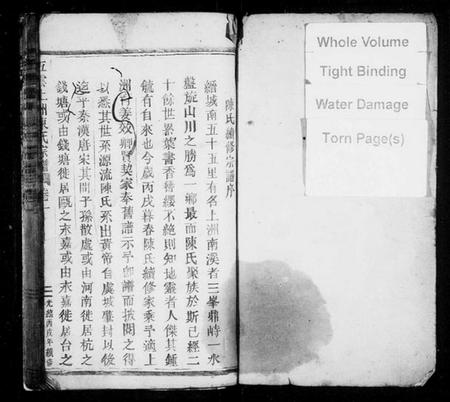 陳氏續修宗譜序
縉城南五十五里有名上洲南溪者三峯鼎峙一水
盤旋山川之勝爲一鄉最而陳氏聚族於斯已經二
十餘世累葉書香簪纓不絕則知地靈者人傑其鍾
毓有自來也今歲丙戌暮春陳氏續修家乘予適上
洲 契家奉舊譜示予 譜而披閱之得
以悉其世系源流陳氏系出黃帝自虞城肇封以後
平秦漢唐宋其間子孫散處或由河南徙居杭之
錢塘或由錢塘徙居甌之永嘉或由永嘉徙居台之
光緒丙戌年續修
Whole Volume
Tight Binding
Water Damage
Torn Page(s)